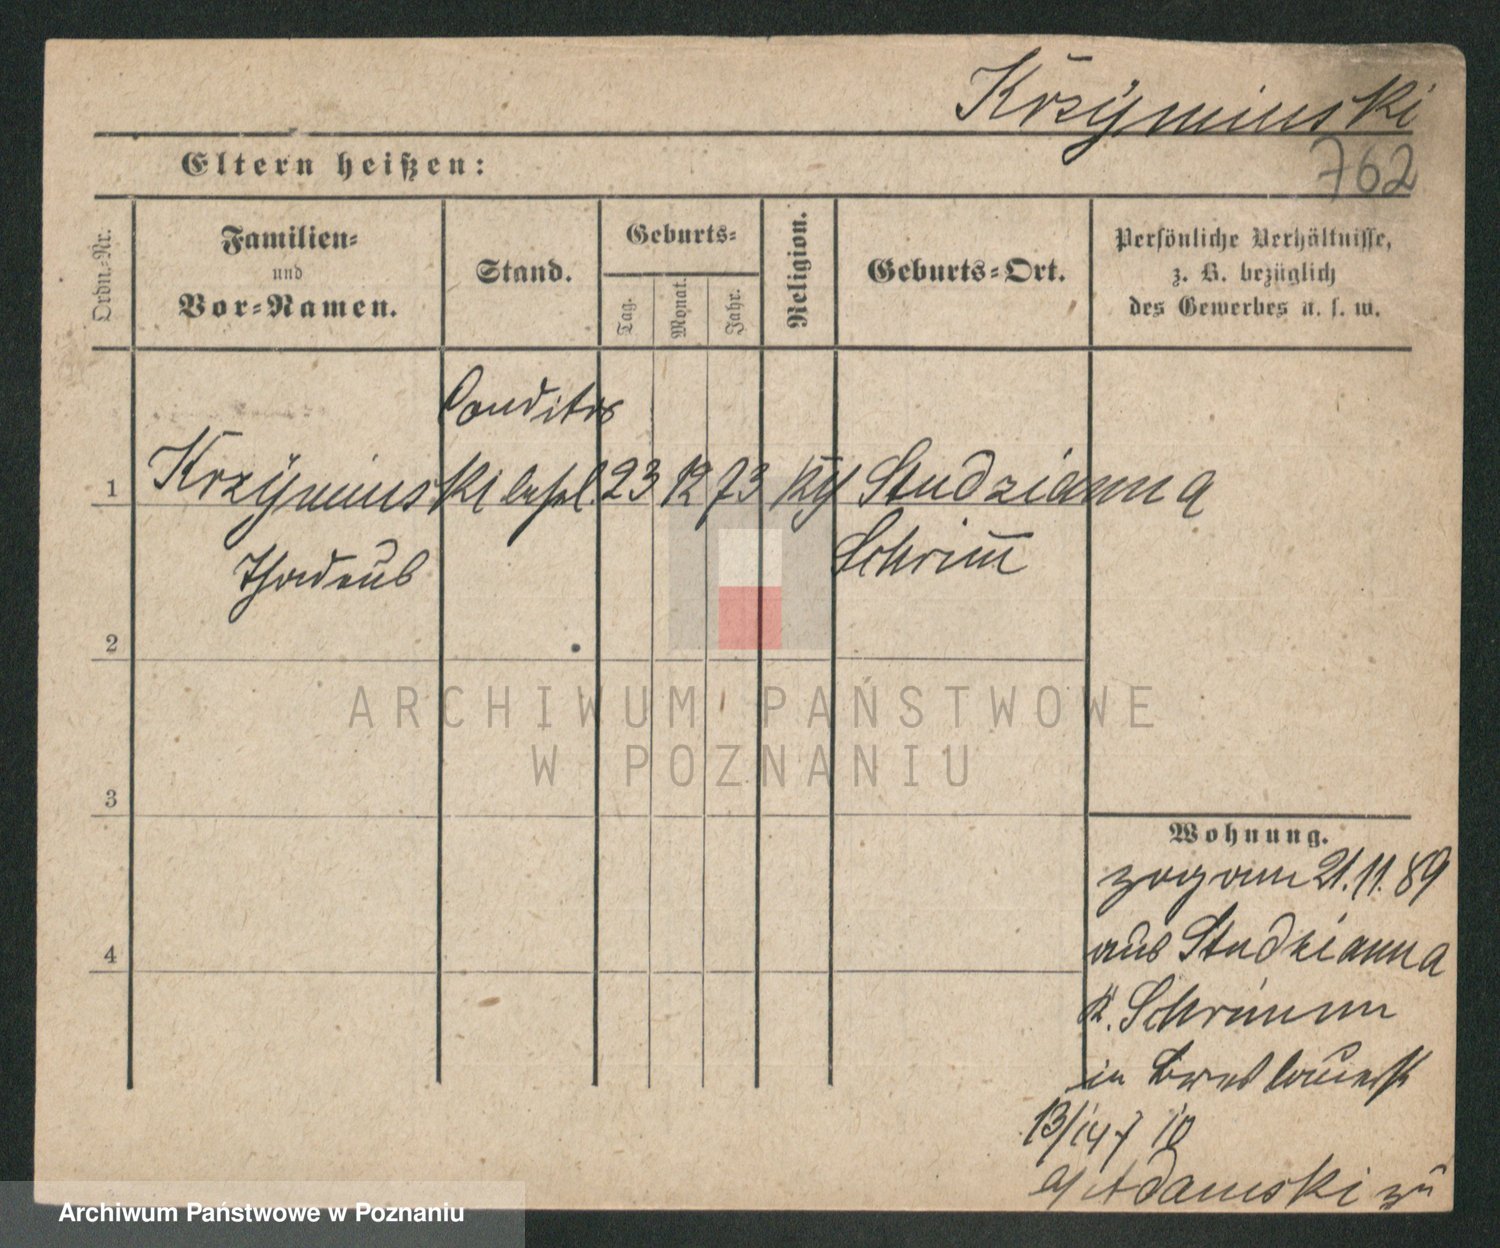 Krzyminski
762
Eltern heißen:
Ordn.-Nr.
Familien-
und
Vor-Namen.
Stand.
Geburts-
Tag.
Monat.
Jahr.
Religion.
Geburts-Ort.
Persönliche Verhältnisse,
z. B. bezüglich
des Gewerbes u. s. w.
Conditor
1 Krzyminski 23 12 73 Studzianna
Thadeus Schrimm
2
ARCHIWUM PAŃSTWOWE
W POZNANIU
3
Wohnung.
zog am 21.11.89
aus Studzianna
4
K. Schrimm
in Breslauerst
13/14
Adamski zu
Archiwum Państwowe w Poznaniu